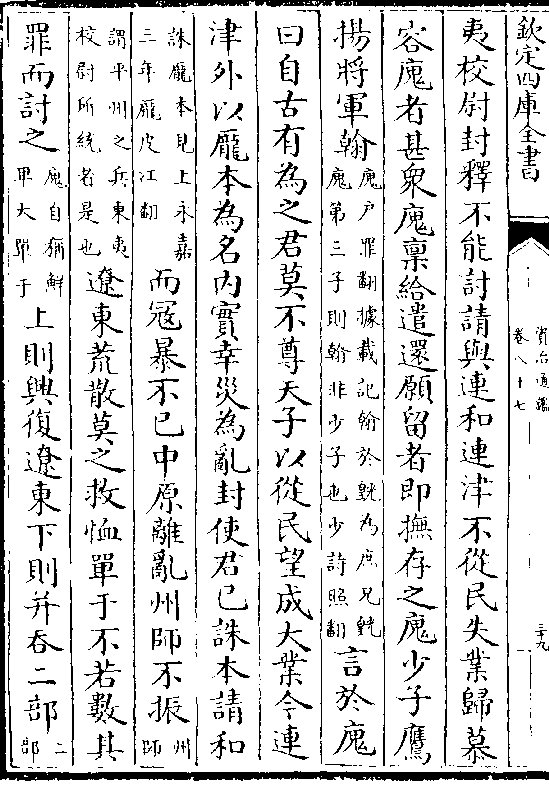 欽定四庫全書
資治通鑑
卷八十七
三九
夷校尉封釋不能討請與連和連津不從民失業歸慕
容廆者甚衆廆稟給遣還願留者即撫存之廆少子鷹
揚將軍翰廆户罪翻據載記翰於皝為庶兄皝
廆第三子則翰非少子也少詩照翻言於廆
曰自古有為之君莫不尊天子以從民望成大業今連
津外以龐本為名内實幸災為亂封使君已誅本請和
誅龐本見上永嘉
三年龐皮江翻而冦暴不已中原離亂州師不振州
師
謂平州之兵東夷
校尉所統者是也遼東荒散莫之救恤單于不若數其
罪而討之廆自稱鮮
卑大單于上則興復遼東下則并吞二部二
部